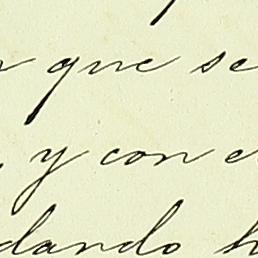 que se
y con e
dando h